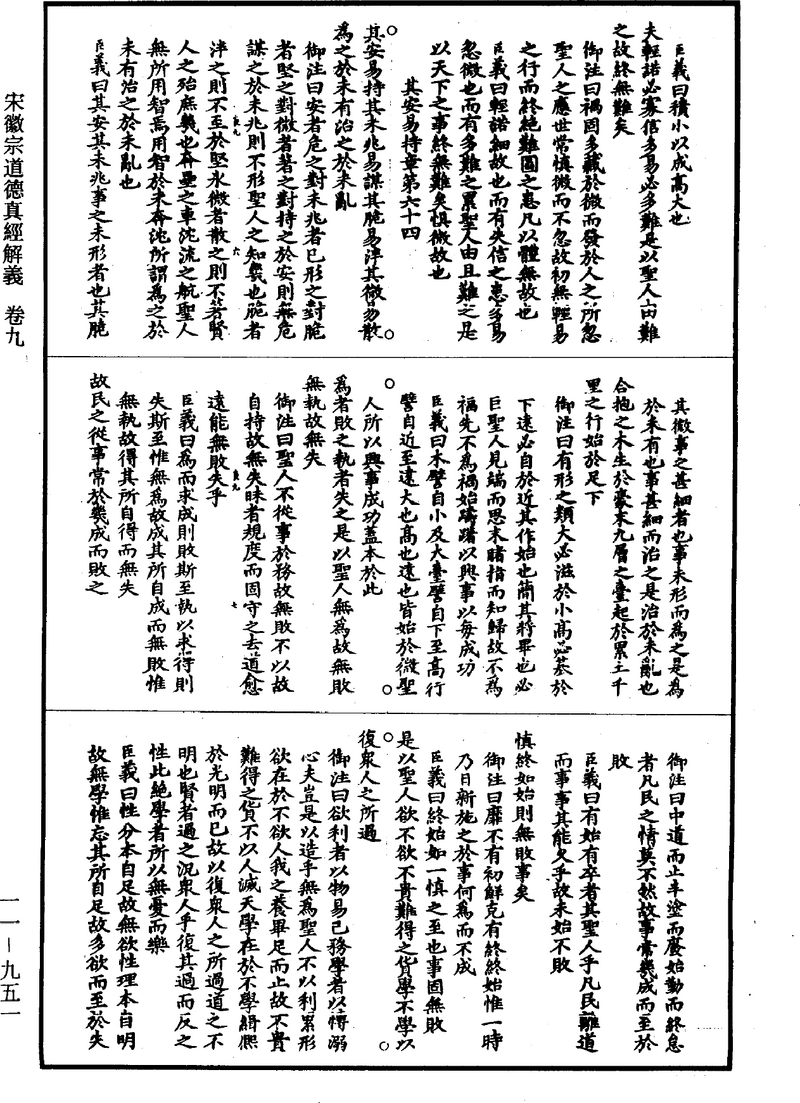 宋徽宗道德真經解義　卷九
臣義曰積小以成高大也
夫輕諾必寡信多易必多難是以聖人由難
之故終無難矣
御注曰禍固多藏於微而發於人之所忽
聖人之應世常慎微而不忽故初無輕易
之行而終絶難圖之患凡以體無故也
臣義曰輕諾細故也而有失信之患多易
忽微也而有多難之累聖人由且難之是
以天下之事終無難矣慎微故也
其安易持章第六十四
其安易持其未兆易謀其脆易泮其微易散
為之於未有治之於未亂
御注曰安者危之對未兆者已形之對脆
者堅之對微者著之對持之於安則無危
謀之於未兆則不形聖人之知幾也脆者
泮之則不至於堅冰微者散之則不著賢
人之殆庶幾也奔壘之車沈流之航聖人
無所用智焉用智於未奔沈所謂為之於
未有治之於未亂也
臣義曰其安其未兆事之未形者也其脆
其微事之甚細者也事未形而為之是為
於未有也事甚細而治之是治於未亂也
合抱之木生於豪末九層之臺起於累土千
里之行始於足下
御注曰有形之類大必滋於小高必基於
下遠必自於近其作始也簡其將畢也必
巨聖人見端而思末睹指而知歸故不為
福先不為禍始躊躇以興事以每成功
臣義曰木譬自小及大臺譬自下至高行
譬自近至遠大也高也遠也皆始於微聖
人所以興事成功蓋本於此
為者敗之執者失之是以聖人無為故無敗
無執故無失
御注曰聖人不從事於務故無敗不以故
自持故無失昧者規度而固守之去道愈
遠能無敗失乎
臣義曰為而求成則敗斯至執以求得則
失斯至惟無為故成其所自成而無敗惟
無執故得其所自得而無失
故民之從事常於幾成而敗之
御注曰中道而止半塗而廢始勤而終怠
者凡民之情莫不然故事常幾成而至於
敗
臣義曰有始有卒者其聖人乎凡民離道
而事事其能久乎故未始不敗
慎終如始則無敗事矣
御注曰靡不有初鮮克有終終始惟一時
乃日新施之於事何為而不成
臣義曰終始如一慎之至也事固無敗
是以聖人欲不欲不貴難得之貨學不學以
復衆人之所過
御注曰欲利者以物易己務學者以博溺
心夫豈是以造乎無為聖人不以利累形
欲在於不欲人我之養畢足而止故不貴
難得之貨不以人滅天學在於不學緝熙
於光明而已故以復衆人之所過道之不
明也賢者過之況衆人乎復其過而反之
性此絶學者所以無憂而樂
臣義曰性分本自足故無欲性理本自明
故無學惟忘其所自足故多欲而至於失
一一－九五一